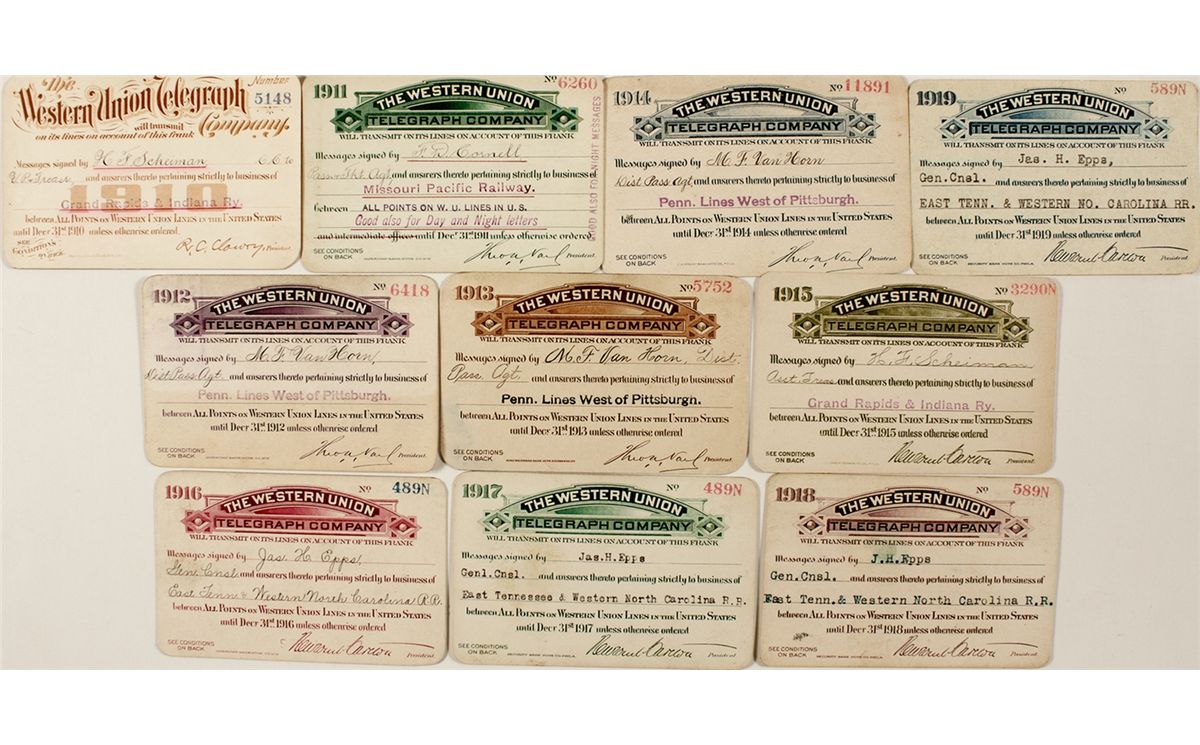 The Number
Western Union Telegraph 5148
will transmit Company.
on its lines on account of this frank
Messages signed by H F Scheiman
V.P. Treas. and answers thereto pertaining strictly to business of
1910
Grand Rapids & Indiana Ry.
between ALL POINTS ON WESTERN UNION LINES IN THE UNITED STATES
until Decr 31st 1910 unless otherwise ordered.
SEE CONDITIONS ON BACK
R.C. Clowry, President
1911 No 6260
THE WESTERN UNION
TELEGRAPH COMPANY
WILL TRANSMIT ON ITS LINES ON ACCOUNT OF THIS FRANK
Messages signed by F D Cornell
Pass. Tkt. Agt. and answers thereto pertaining strictly to business of
Missouri Pacific Railway.
between ALL POINTS ON W. U. LINES IN U.S.
Good also for Day and Night letters
and intermediate offices until Decr 31st 1911 unless otherwise ordered
SEE CONDITIONS
ON BACK
President.
GOOD ALSO FOR NIGHT MESSAGES
1914 No 11891
THE WESTERN UNION
TELEGRAPH COMPANY
WILL TRANSMIT ON ITS LINES ON ACCOUNT OF THIS FRANK
Messages signed by M. F. Van Horn
Dist Pass. Agt. and answers thereto pertaining strictly to business of
Penn. Lines West of Pittsburgh.
between ALL POINTS ON WESTERN UNION LINES IN THE UNITED STATES
until Decr 31st 1914 unless otherwise ordered
SEE CONDITIONS
ON BACK
President.
1919 No 589N
THE WESTERN UNION
TELEGRAPH COMPANY
WILL TRANSMIT ON ITS LINES ON ACCOUNT OF THIS FRANK
Messages signed by Jas. H. Epps,
Gen. Cnsl. and answers thereto pertaining strictly to business of
EAST TENN. & WESTERN NO. CAROLINA RR.
between ALL POINTS ON WESTERN UNION LINES IN THE UNITED STATES
until Decr 31st 1919 unless otherwise ordered
SEE CONDITIONS
ON BACK
Newcomb Carlton President.
SECURITY BANK NOTE CO. PHILA.
1912 No 6418
THE WESTERN UNION
TELEGRAPH COMPANY
WILL TRANSMIT ON ITS LINES ON ACCOUNT OF THIS FRANK
Messages signed by M. F. Van Horn
Dist. Pass. Agt. and answers thereto pertaining strictly to business of
Penn. Lines West of Pittsburgh.
between ALL POINTS ON WESTERN UNION LINES IN THE UNITED STATES
until Decr 31st 1912 unless otherwise ordered
SEE CONDITIONS
ON BACK
President.
1913 No 5752
THE WESTERN UNION
TELEGRAPH COMPANY
WILL TRANSMIT ON ITS LINES ON ACCOUNT OF THIS FRANK
Messages signed by M. F. Van Horn, Dist.
Pass. Agt. and answers thereto pertaining strictly to business of
Penn. Lines West of Pittsburgh.
between ALL POINTS ON WESTERN UNION LINES IN THE UNITED STATES
until Decr 31st 1913 unless otherwise ordered
SEE CONDITIONS
ON BACK
President.
1915 No 3290N
THE WESTERN UNION
TELEGRAPH COMPANY
WILL TRANSMIT ON ITS LINES ON ACCOUNT OF THIS FRANK
Messages signed by H. F. Scheiman
Asst. Treas and answers thereto pertaining strictly to business of
Grand Rapids & Indiana Ry.
between ALL POINTS ON WESTERN UNION LINES IN THE UNITED STATES
until Decr 31st 1915 unless otherwise ordered
SEE CONDITIONS
ON BACK
Newcomb Carlton President.
1916 No 489N
THE WESTERN UNION
TELEGRAPH COMPANY
WILL TRANSMIT ON ITS LINES ON ACCOUNT OF THIS FRANK
Messages signed by Jas. H. Epps,
Gen. Cnsl. and answers thereto pertaining strictly to business of
East Tenn. & Western North Carolina R.R.
between ALL POINTS ON WESTERN UNION LINES IN THE UNITED STATES
until Decr 31st 1916 unless otherwise ordered
SEE CONDITIONS
ON BACK
Newcomb Carlton President.
1917 No 489N
THE WESTERN UNION
TELEGRAPH COMPANY
WILL TRANSMIT ON ITS LINES ON ACCOUNT OF THIS FRANK
Messages signed by Jas.H.Epps
Genl.Cnsl. and answers thereto pertaining strictly to business of
East Tennessee & Western North Carolina R.R.
between ALL POINTS ON WESTERN UNION LINES IN THE UNITED STATES
until Decr 31st 1917 unless otherwise ordered
SEE CONDITIONS
ON BACK
Newcomb Carlton President.
SECURITY BANK NOTE CO. PHILA.
1918 No 589N
THE WESTERN UNION
TELEGRAPH COMPANY
WILL TRANSMIT ON ITS LINES ON ACCOUNT OF THIS FRANK
Messages signed by J.H.Epps
Gen.Cnsl. and answers thereto pertaining strictly to business of
East Tenn.& Western North Carolina R.R.
between ALL POINTS ON WESTERN UNION LINES IN THE UNITED STATES
until Decr 31st 1918 unless otherwise ordered
SEE CONDITIONS
ON BACK
Newcomb Carlton President.
SECURITY BANK NOTE CO. PHILA.